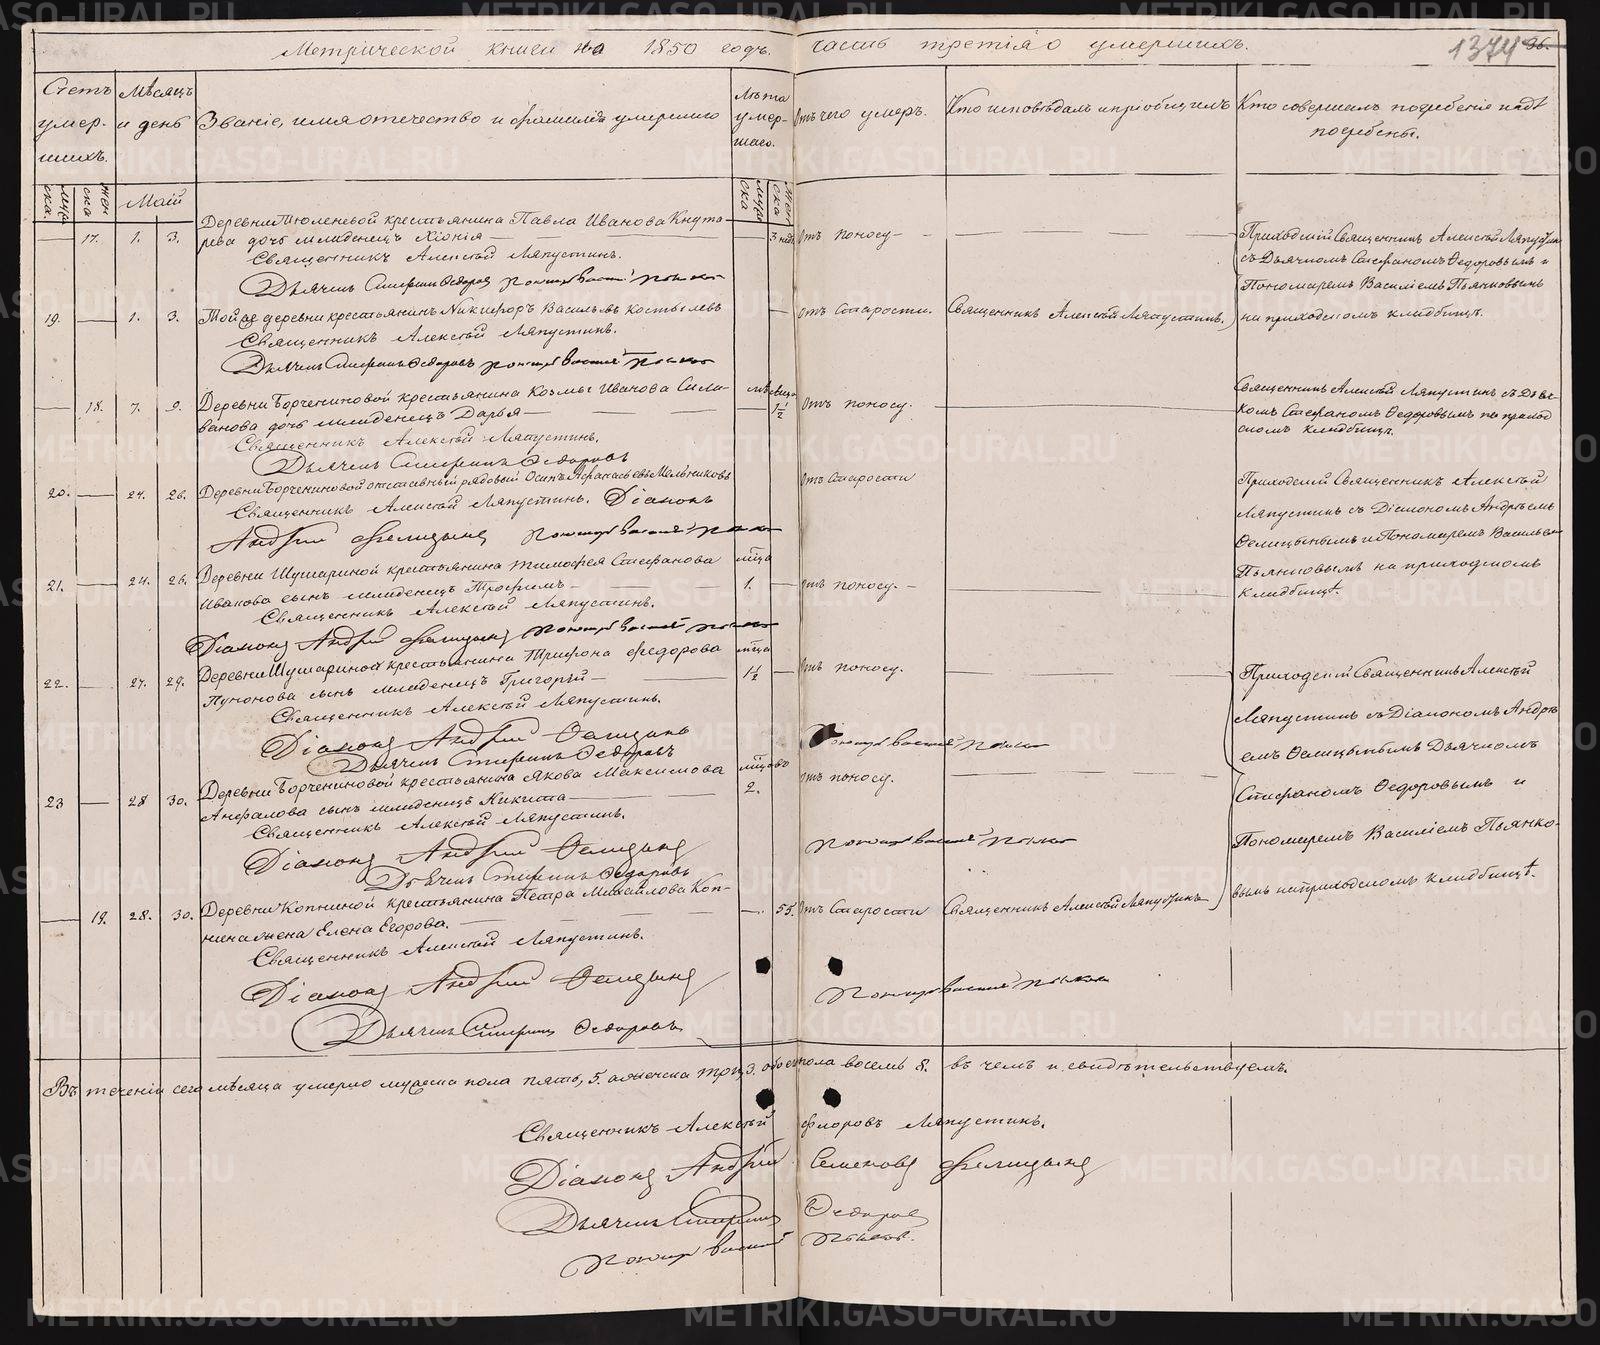 Метрической книги на 1850 годъ. часть третія о умершихъ.
1374
Счетъ умер- шихъ.
Мѣсяцъ и день
Званіе, имя отечество и фамилія умершаго
Лѣта умер- шаго.
Отъ чего умеръ.
Кто исповѣдалъ и пріобщилъ
Кто совершалъ погребеніе и гдѣ
погребены.
муж ска.
жен ска
Маій
муж ска
жен ска
Деревни Тюленевой крестьянина Павла Иванова Кнута-
17. 1. 3. рева дочь младенецъ Хіонія 3 нед. отъ поносу
Священникъ Алексѣй Ляпустинъ.
Дьячекъ Стефанъ Ѳедоровъ Пономарь Василій Пьянковъ
Приходскій Священникъ Алексѣй Ляпустинъ
съ Дьячкомъ Стефаномъ Ѳедоровымъ и
Пономаремъ Василіемъ Пьянковымъ
на приходскомъ кладбищѣ.
19. 1. 3. Той же деревни крестьянинъ Никифоръ Васильевъ Костылевъ отъ старости. Священникъ Алексѣй Ляпустинъ.
Священникъ Алексѣй Ляпустинъ.
Дьячекъ Стефанъ Ѳедоровъ Пономарь Василій Пьянковъ
18. 7. 9. Деревни Борчениновой крестьянина Козмы Иванова Сели- мѣсяца 1½ отъ поносу.
ванова дочь младенецъ Дарья
Священникъ Алексѣй Ляпустинъ.
Дьячекъ Стефанъ Ѳедоровъ
Священникъ Алексѣй Ляпустинъ съ Дьяч-
комъ Стефаномъ Ѳедоровымъ на приход
скомъ кладбищѣ.
20. 24. 26. Деревни Борчениновой отставный рядовый Осипъ Афанасьевъ Мельниковъ отъ старости
Священникъ Алексѣй Ляпустинъ. Діаконъ
Андрей Фелицынъ Пономарь Василій Пьянковъ
Приходскій Священникъ Алексѣй
Ляпустинъ съ Діакономъ Андреемъ
Фелицынымъ и Пономаремъ Василіемъ
Пьянковымъ на приходскомъ
кладбищѣ.
21. 24. 26. Деревни Шушариной крестьянина Тимофея Стефанова мца 1. отъ поносу.
Иванова сынъ младенецъ Трофимъ
Священникъ Алексѣй Ляпустинъ.
Діаконъ Андрей Фелицынъ Пономарь Василій Пьянковъ
22. 27. 29. Деревни Шушариной крестьянина Трифона Федорова мца 1½ отъ поносу.
сынъ младенецъ Григорій
Священникъ Алексѣй Ляпустинъ.
Діаконъ Андрей Фелицынъ
Дьячекъ Стефанъ Ѳедоровъ
Пономарь Василій Пьянковъ
Приходскій Священникъ Алексѣй
Ляпустинъ съ Діакономъ Андре
емъ Фелицынымъ Дьячкомъ
Стефаномъ Ѳедоровымъ и
Пономаремъ Василіемъ Пьянко-
вымъ на приходскомъ кладбищѣ.
23 28 30. Деревни Борчениновой крестьянина Якова Максимова 2. отъ поносу.
сынъ младенецъ Никита
Священникъ Алексѣй Ляпустинъ.
Діаконъ Андрей Фелицынъ
Дьячекъ Стефанъ Ѳедоровъ
Пономарь Василій Пьянковъ
19. 28. 30. Деревни Копниной крестьянина Петра Михайлова Коп- 55. отъ старости Священникъ Алексѣй Ляпустинъ
нина жена Елена Егорова.
Священникъ Алексѣй Ляпустинъ.
Діаконъ Андрей Фелицынъ
Дьячекъ Стефанъ Ѳедоровъ
Пономарь Василій Пьянковъ
Въ теченіи сего мѣсяца умерло мужеска пола пять, 5. а женска три, 3. обоего пола восемь 8. въ чемъ и свидѣтельствуемъ.
Священникъ Алексѣй Флоровъ Ляпустинъ.
Діаконъ Андрей Семеновъ Фелицынъ
Дьячекъ Стефанъ Ѳедоровъ
Пономарь Василій Пьянковъ.
METRIKI.GASO-URAL.RU